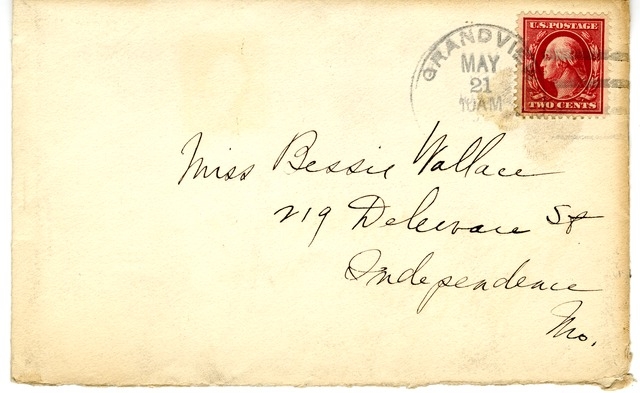 U.S. POSTAGE
GRANDVIEW
MAY
21
10AM
TWO CENTS
Miss Bessie Wallace
219 Deleware St
Independence
Mo.